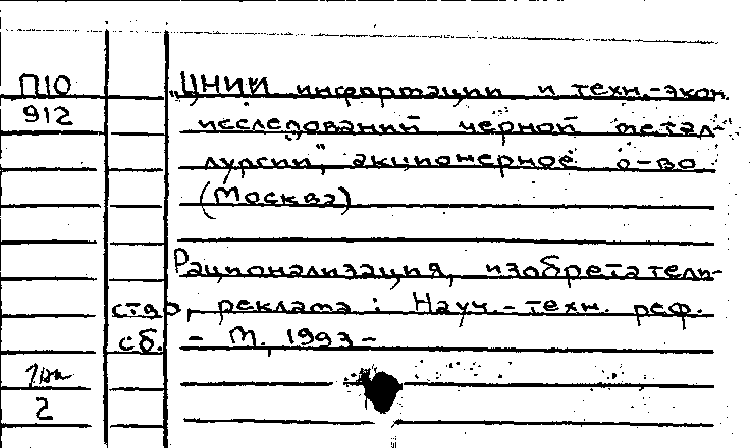 П10
912
"ЦНИИ информации и техн.-экон.
исследований черной метал-
лургии", акционерное о-во
(Москва)
Рационализация, изобретатель-
ство, реклама: Науч.-техн. реф.
сб. - М., 1993-
2